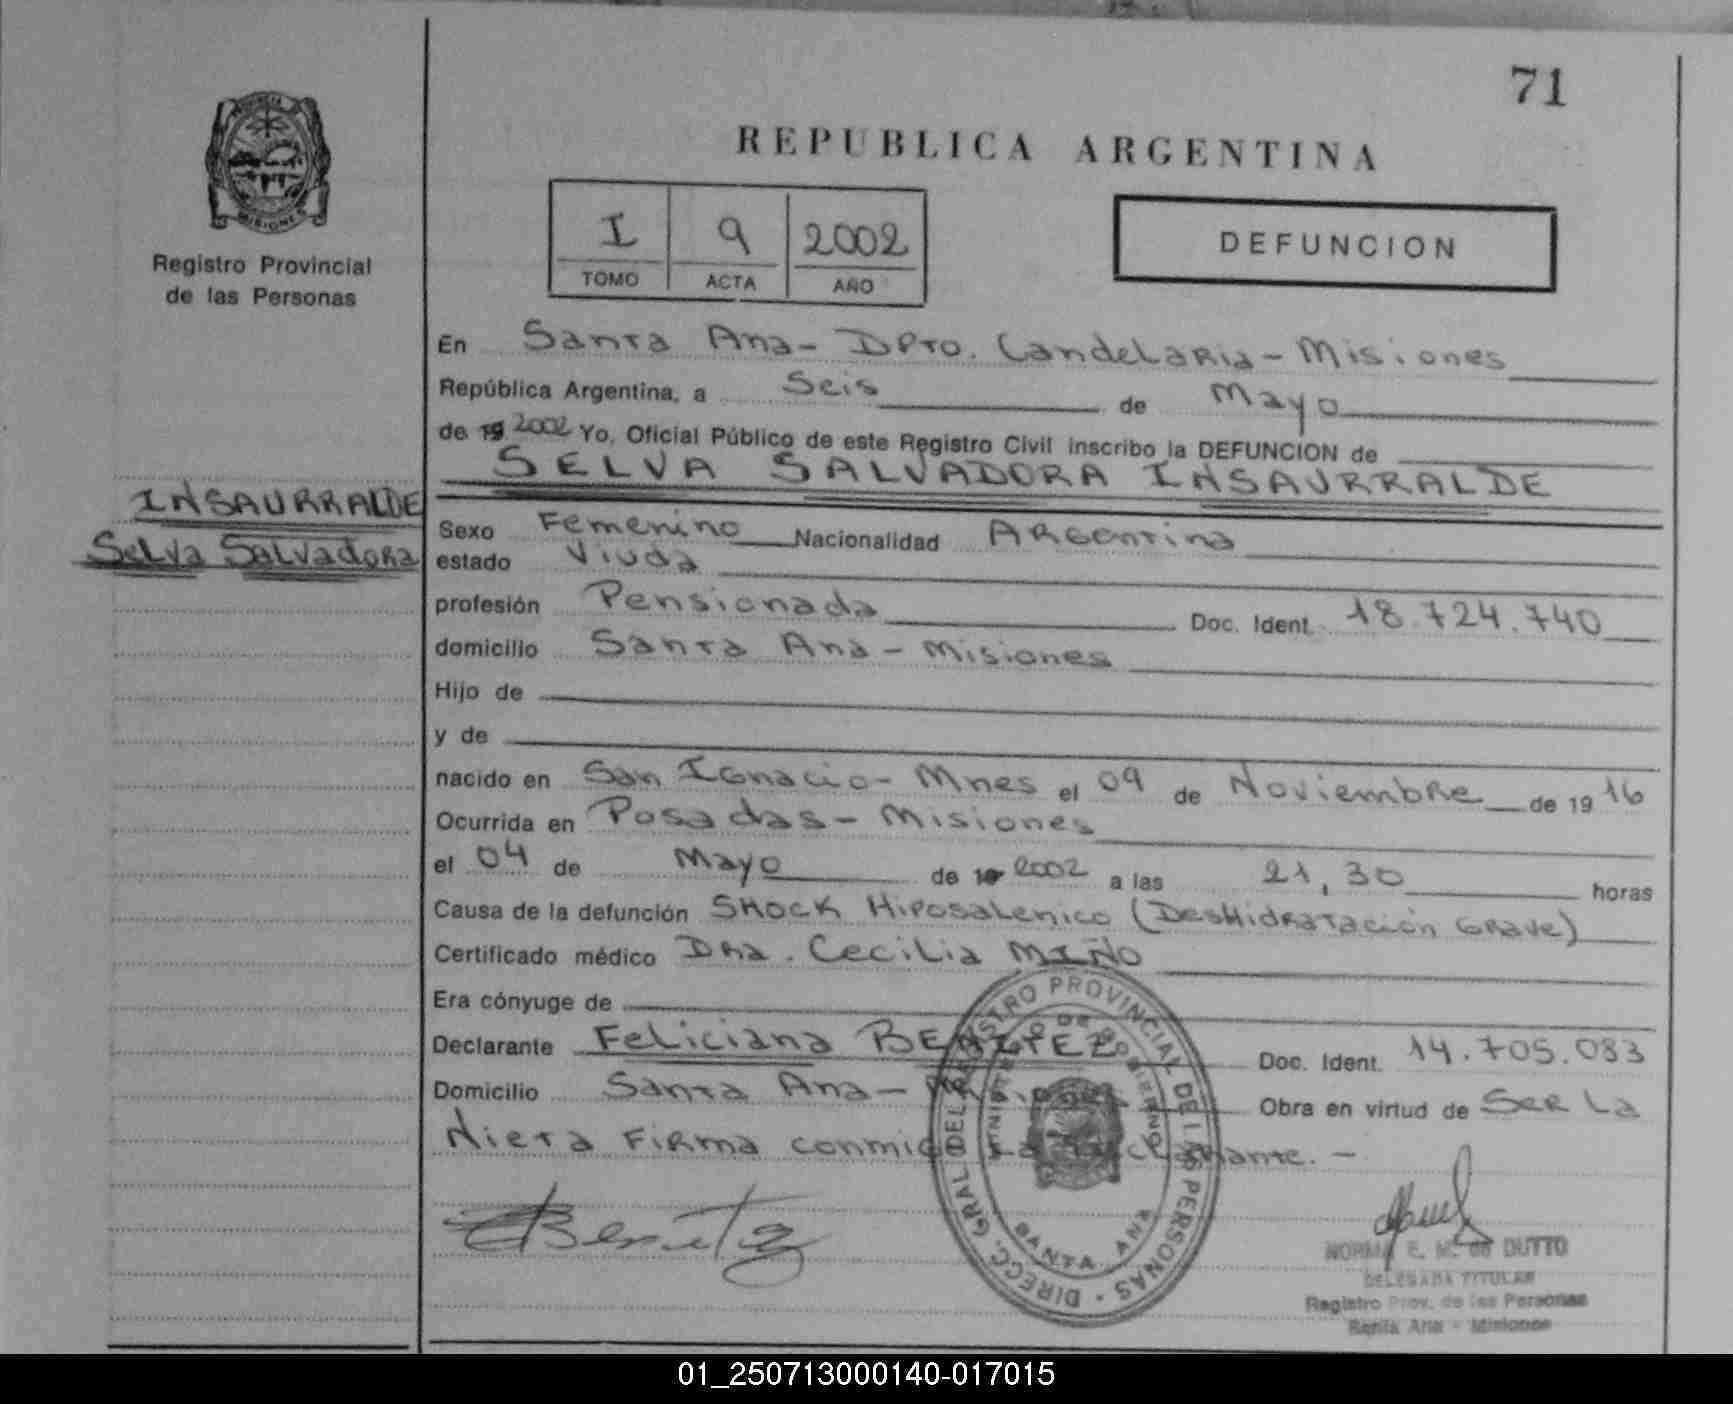 71
REPUBLICA ARGENTINA
PROVINCIA
MISIONES
Registro Provincial
de las Personas
I 9 2002
TOMO ACTA AÑO
DEFUNCION
En Santa Ana - Dpto. Candelaria - Misiones
República Argentina, a Seis de Mayo
de 19 2002 Yo, Oficial Público de este Registro Civil inscribo la DEFUNCION de
SELVA SALVADORA INSAURRALDE
INSAURRALDE
Selva Salvadora
Sexo Femenino Nacionalidad Argentina
estado Viuda
profesión Pensionada Doc. Ident. 18.724.740
domicilio Santa Ana - Misiones
Hijo de
y de
nacido en San Ignacio - Mnes el 09 de Noviembre de 19 16
Ocurrida en Posadas - Misiones
el 04 de Mayo de 19 2002 a las 21,30 horas
Causa de la defunción SHOCK Hiposalenico (Deshidratación Grave)
Certificado médico Dra. Cecilia MIÑO
Era cónyuge de
Declarante Feliciana BENITEZ Doc. Ident. 14.705.083
Domicilio Santa Ana - Misiones Obra en virtud de Ser La
Nieta Firma conmigo La Declarante. -
DIRECC. GRAL DEL REGISTRO PROVINCIAL DE LAS PERSONAS
MINISTERIO DE GOBIERNO
SANTA ANA
Benitez
NORMA E. M. de DUTTO
DELEGADA TITULAR
Registro Prov. de las Personas
Santa Ana - Misiones
01_250713000140-017015